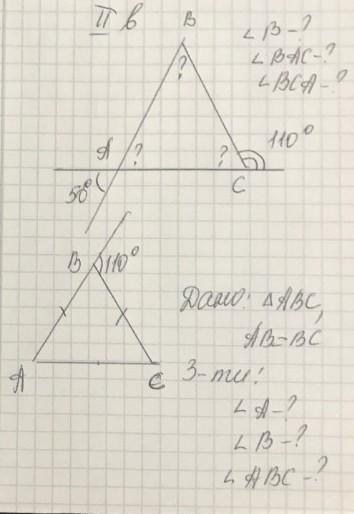 II в
B
∠B-?
∠BAC-?
∠BCA-?
?
A
?
?
110°
50°
C
B
110°
Дано: △ABC,
AB=BC
A
C
З-ти:
∠A-?
∠B-?
∠ABC-?